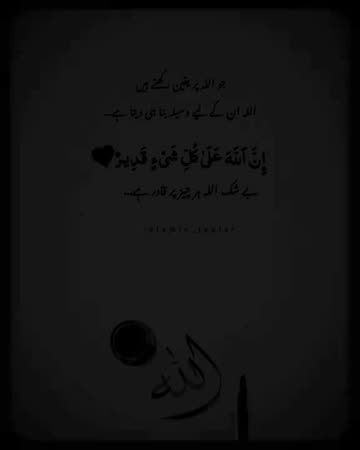 جو اللہ پر یقین رکھتے ہیں
اللہ ان کے لیے وسیلہ بنا ہی دیتا ہے۔۔
إِنَّ ٱللَّهَ عَلَىٰ كُلِّ شَىْءٍ قَدِيرٌ🖤
بے شک اللہ ہر چیز پر قادر ہے۔۔۔
الله